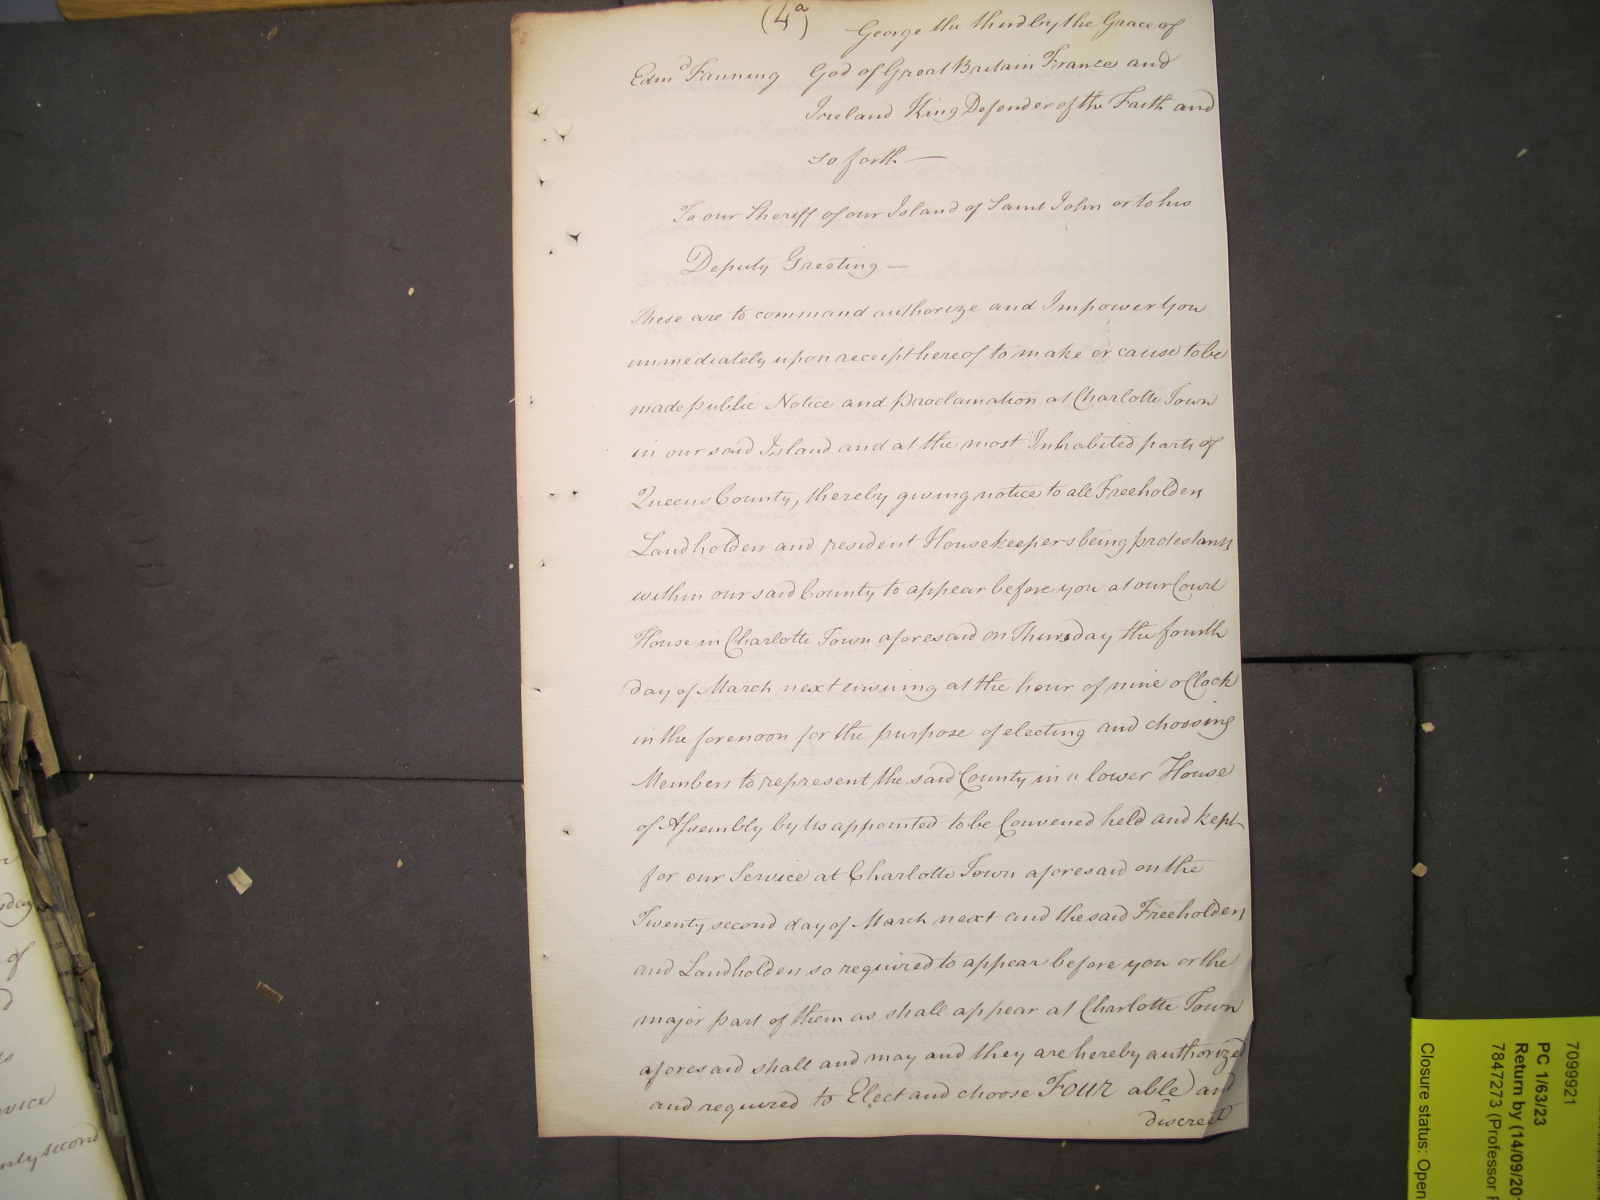 (4a)
George the third by the Grace of
Edmd Fanning God of Great Britain France and
Ireland King Defender of the Faith and
so forth —
To our Sheriff of our Island of Saint John or to his
Deputy Greeting —
These are to command authorize and Impower You
immediately upon receipt hereof to make or cause to be
made public Notice and Proclamation at Charlotte Town
in our said Island and at the most Inhabited parts of
Queens County, thereby giving notice to all Freeholders
Landholders and resident Housekeepers being protestants
within our said County to appear before you at our Court
House in Charlotte Town aforesaid on Thursday the fourth
day of March next ensuing at the hour of nine oClock
in the forenoon for the purpose of electing and choosing
Members to represent the said County in a lower House
of Assembly by Us appointed to be Convened held and kept
for our Service at Charlotte Town aforesaid on the
Twenty second day of March next and the said Freeholders
and Landholders so required to appear before you or the
major part of them as shall appear at Charlotte Town
aforesaid shall and may and they are hereby authorized
and required to Elect and choose Four able and
discreet
of
vice
second
7099921
PC 1/63/23
Return by (14/09/20
7847273 (Professor
Closure status: Open